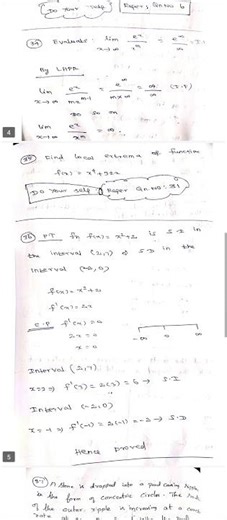 Do Your Self
Refer, Qn.No 6
(34) Evaluate: lim x→∞ e^x/x^m = e^∞/∞ =
By LHPR
lim x→∞ e^x/mx^m-1 = e^∞/m×∞ = ∞/∞ (I.F)
lim x→∞ e^x/ = ∞
4
Find local extrema of function
f(x) = x^4+32x
Do Your self Refer Qn.No: 31
(36) PT fn f(x) = x²+2 is S.I in
the interval (2,7) & S.D in the
interval (-2,0)
f(x) = x²+2
f'(x) = 2x
C.P f'(x) = 0
2x = 0
x = 0
-∞ 0 ∞
Interval (2,7)
x=3 ⇒ f'(3) = 2(3) = 6 ⇒ S.I
Interval (-2,0)
x=-1 ⇒ f'(-1) = 2(-1) = -2 ⇒ S.D
Hence proved
5
(37) A stone is dropped into a pond causing
in the form of concentric circle. The
of the outer ripple is increasing at a